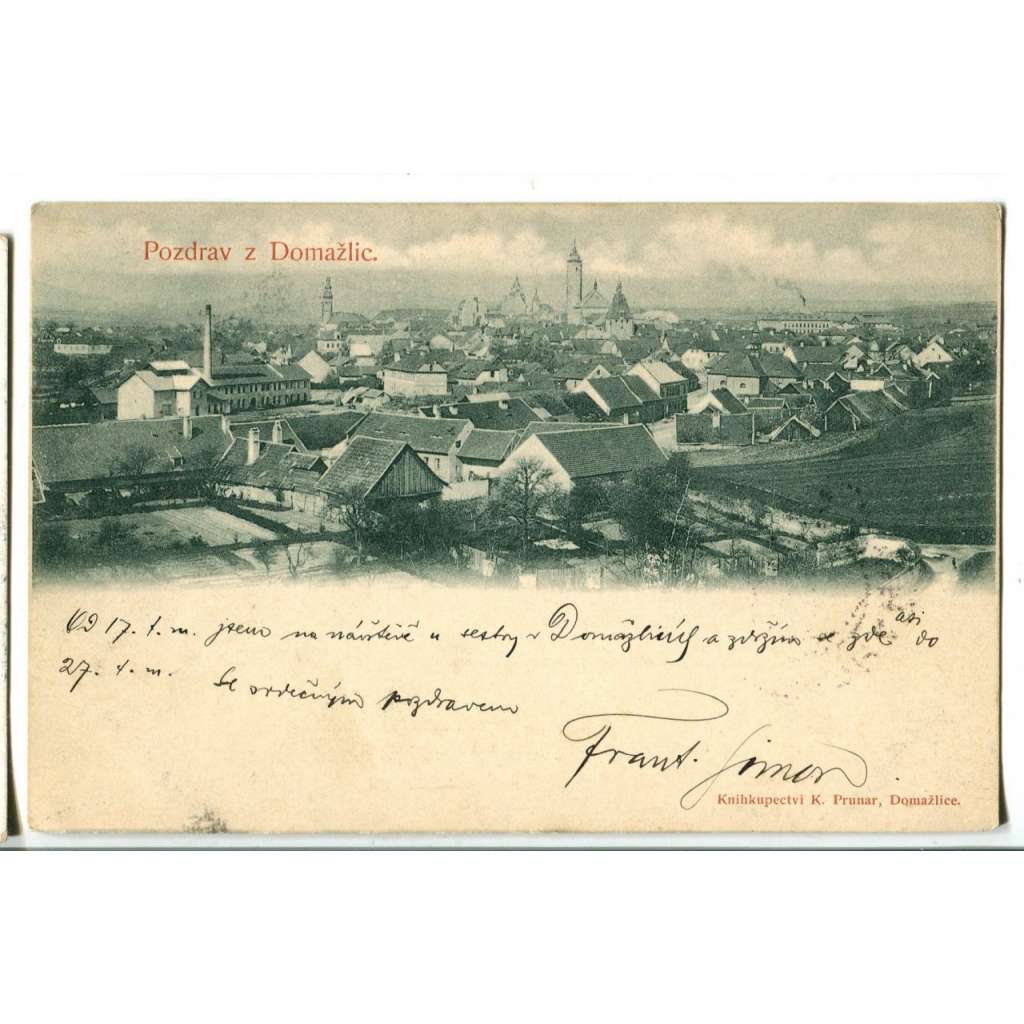 Pozdrav z Domažlic.
Od 17. t. m. jsem na návštěvě u sestry v Domažlicích a zdržím se zde asi do
27. t. m. Se srdečným pozdravem
Frant. Šimon
Knihkupectví K. Prunar, Domažlice.